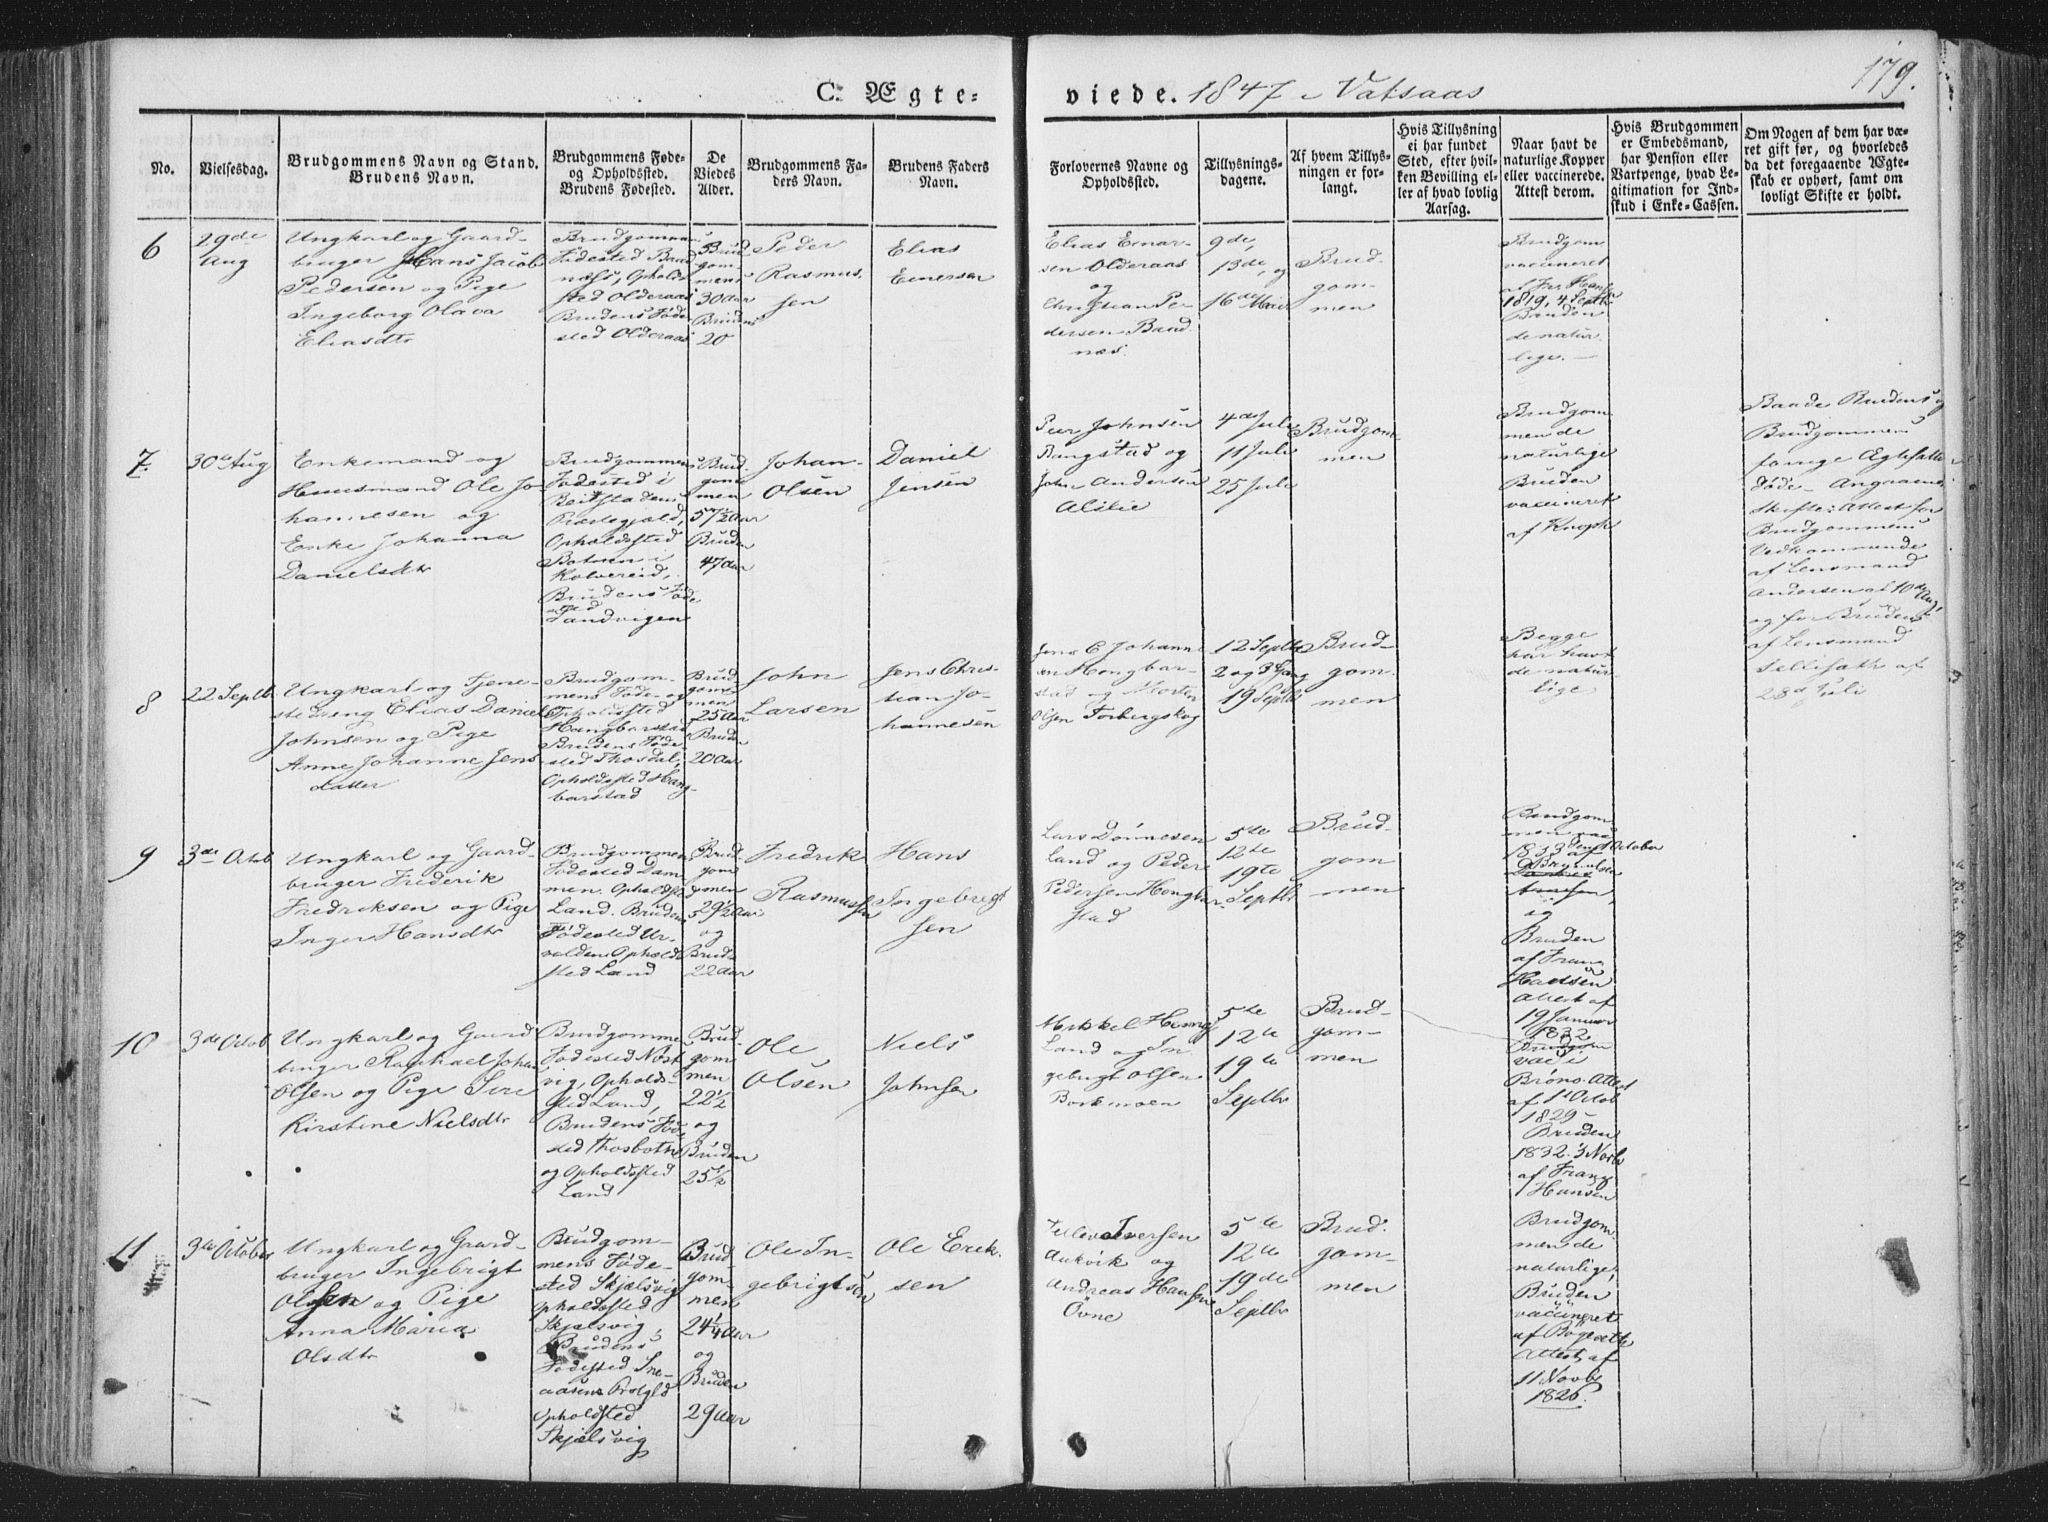 179.
C. Ægte-
viede. 1847 Vatsaas
No.
Vielsesdag.
Brudgommens Navn og Stand.
Brudens Navn.
Brudgommens Føde-
og Opholdssted.
Brudens Fødested.
De
Viedes
Alder.
Brudgommens Fa-
ders Navn.
Brudens Faders
Navn.
Forlovernes Navne og
Opholdssted.
Tillysnings-
dagene.
Af hvem Tillys-
ningen er for-
langt.
Hvis Tillysning
ei har fundet
Sted, efter hvil-
ken Bevilling el-
ler af hvad lovlig
Aarsag.
Naar havt de
naturlige Kopper
eller vaccinerede.
Attest derom.
Hvis Brudgommen
er Embedsmand,
har Pension eller
Vartpenge, hvad Le-
gitimation for Ind-
skud i Enke-Cassen.
Om Nogen af dem har væ-
ret gift før, og hvorledes
da det foregaaende Ægte-
skab er ophørt, samt om
lovligt Skifte er holdt.
6
29de
Aug
Ungkarl og Gaard-
bruger Hans Jacob
Pedersen og Pige
Ingeborg Olava
Eliasdtr
Brudgommens
Fødested Baad
næs, Ophold
sted Olderaas
Brudens Føde
sted Olderaas
Brud
gom
mens
30 aar
Brudens
20
Peder
Rasmus
sen
Elias
Einersen
Elias Einar-
sen Olderaas
og
Christian Pe
dersen Baad
næs.
9de,
13de, og
16de Mai
Brud-
gom-
men
Brudgom
vaccineret
af Fr. Hansen
1819. 4 Septb
Bruden
de natur
lige. —
7.
30te Aug
Enkemand og
Huusmand Ole Jo
hannesen og
Enke Johanna
Danielsdtr
Brudgommens
Fødested i
Beitstadens
Præstegjæld,
Opholdssted
Botnen i
Kolvereid,
Brudens Føde
sted
Sandvigen
Brud.
gom
men
57½ Aar
Bruden
47 Aar
Johan-
Olsen
Daniel
Jensen
Peer Johnsen
Rangstad og
John Andersen
Alslie
4de Juli
11 Juli
25 Juli
Brudgom-
men
Brudgom
men de
naturlige
Bruden
vaccineret
af Knoph
Baade Brudens og
Brudgommens
forrige Ægtefælle
døde - Angaaende
Skifte: Attest for
Brudgommens
Vedkommende
af Lensmand
Andersen af 10de Aug
og for Brudens
af Lensmand
Sellisæth af
28de Juli
8
22 Septb
Ungkarl og Tjene-
stedreng Elias Daniel
Johnsen og Pige
Anne Johanne Jens
datter
Brudgom-
mens Føde- og
Opholdssted
Hongbarstad
Brudens Føde
sted Thosdal,
Opholdssted Hong-
barstad
Brud
gom
men
25 Aar
Bruden
20 Aar
John
Larsen
Jens Chris-
tian Jo-
hannesen
Jens C Johanne
sen Hongbar-
stad og Morten
Olsen Forbergskog
12 Septbr
2 og 3 Gang
19 Septbr
Brud-
gom-
men
Begge
har havt
de natur
lige
9
3de Octob
Ungkarl og Gaard-
bruger Frederik
Fredriksen og Pige
Inger Hansdtr
Brudgommen
Fødested Dam
men. Opholdsst
Land. Brudens
Fødested Ur-
valden Ophold
sted Land
Brud-
gom
men
29½ Aar
og
Brud-
22 Aar
Fredrik
Rasmussen
Hans
Ingebrigt
sen
Lars Dønnesen
Land og Peder
Pedersen Hongbar-
stad
5te
12te
19te
Septbr
Brud-
gom
men
Brudgom
men vac
1833 den 1 October
af
og
Bruden
af Franz
Hansen
Attest af
19 Januar
1832
10
3de Octob
Ungkarl og Gaard
bruger Raphael Johan
Olsen og Pige Sire
Kirstine Nielsdtr
Brudgommen
Fødested Nort
vig, Opholds-
sted Land,
Brudens Føde
sted Thosbotn
og Opholdssted
Land
Brud-
gom
men
22½
og
Bruden
25½
Ole
Olsen
Niels
Johnsen
Mikkel Hansen
Land og In
gebrigt Olsen
Borkmoen
5te
12te
19te
Septbr
Brud-
gom-
men
Brudgom
vac i
Brøno. Attest
af 1st Octob
1829-
Bruden
1832. 3 Novb
af Franz
Hansen
11
3de October
Ungkarl og Gaard-
bruger Ingebrigt
Olsen og Pige
Anna Maria
Olsdtr
Brudgom-
mens Føde-
sted Skjelsvig
Opholdssted
Skjelsvig,
Brudens
Fødested Sne-
aasens Prstgld
Opholdsted
Skjelsvig
Brud-
gom-
men
24¼ Aar
og
Bruden
29 Aar
Ole In-
gebrigtsen
Ole Erik-
sen
Tellev Iversen
Aakvik og
Andreas Hansen
Øvne
5te
12te
19de
Septbr
Brud.
gom-
men
Brudgom
men de
naturlige,
Bruden
vaccineret
af Bøgedtto
Attest, af
11 Novbr
1826.